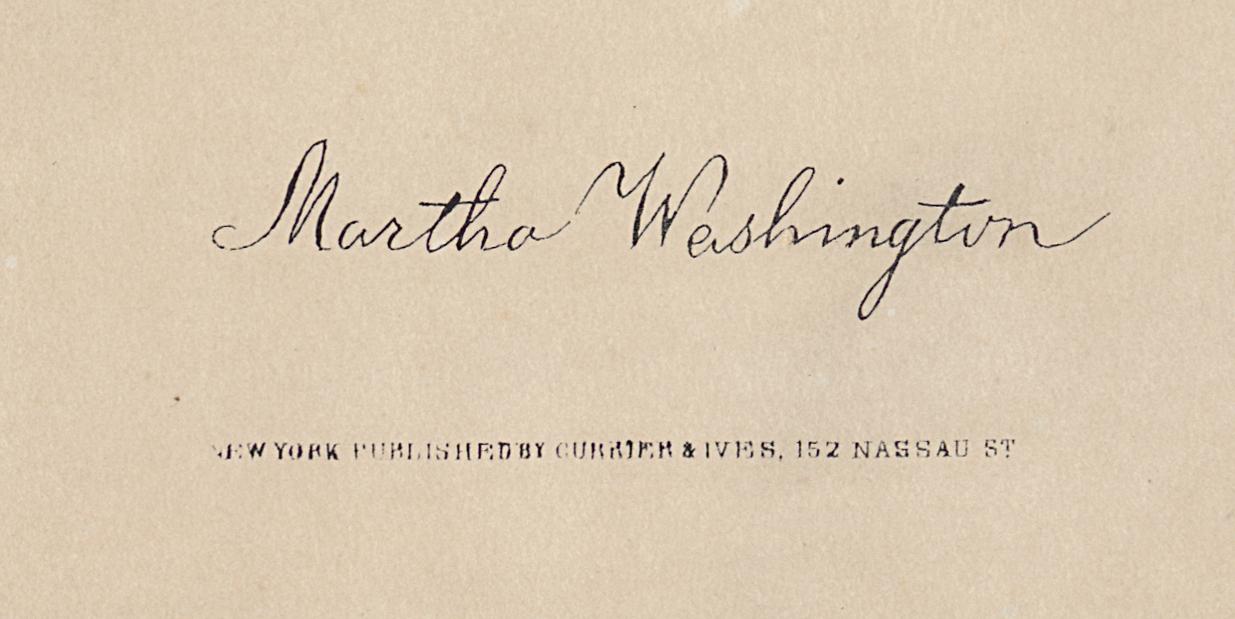 Martha Washington
NEW YORK PUBLISHED BY CURRIER & IVES, 152 NASSAU ST